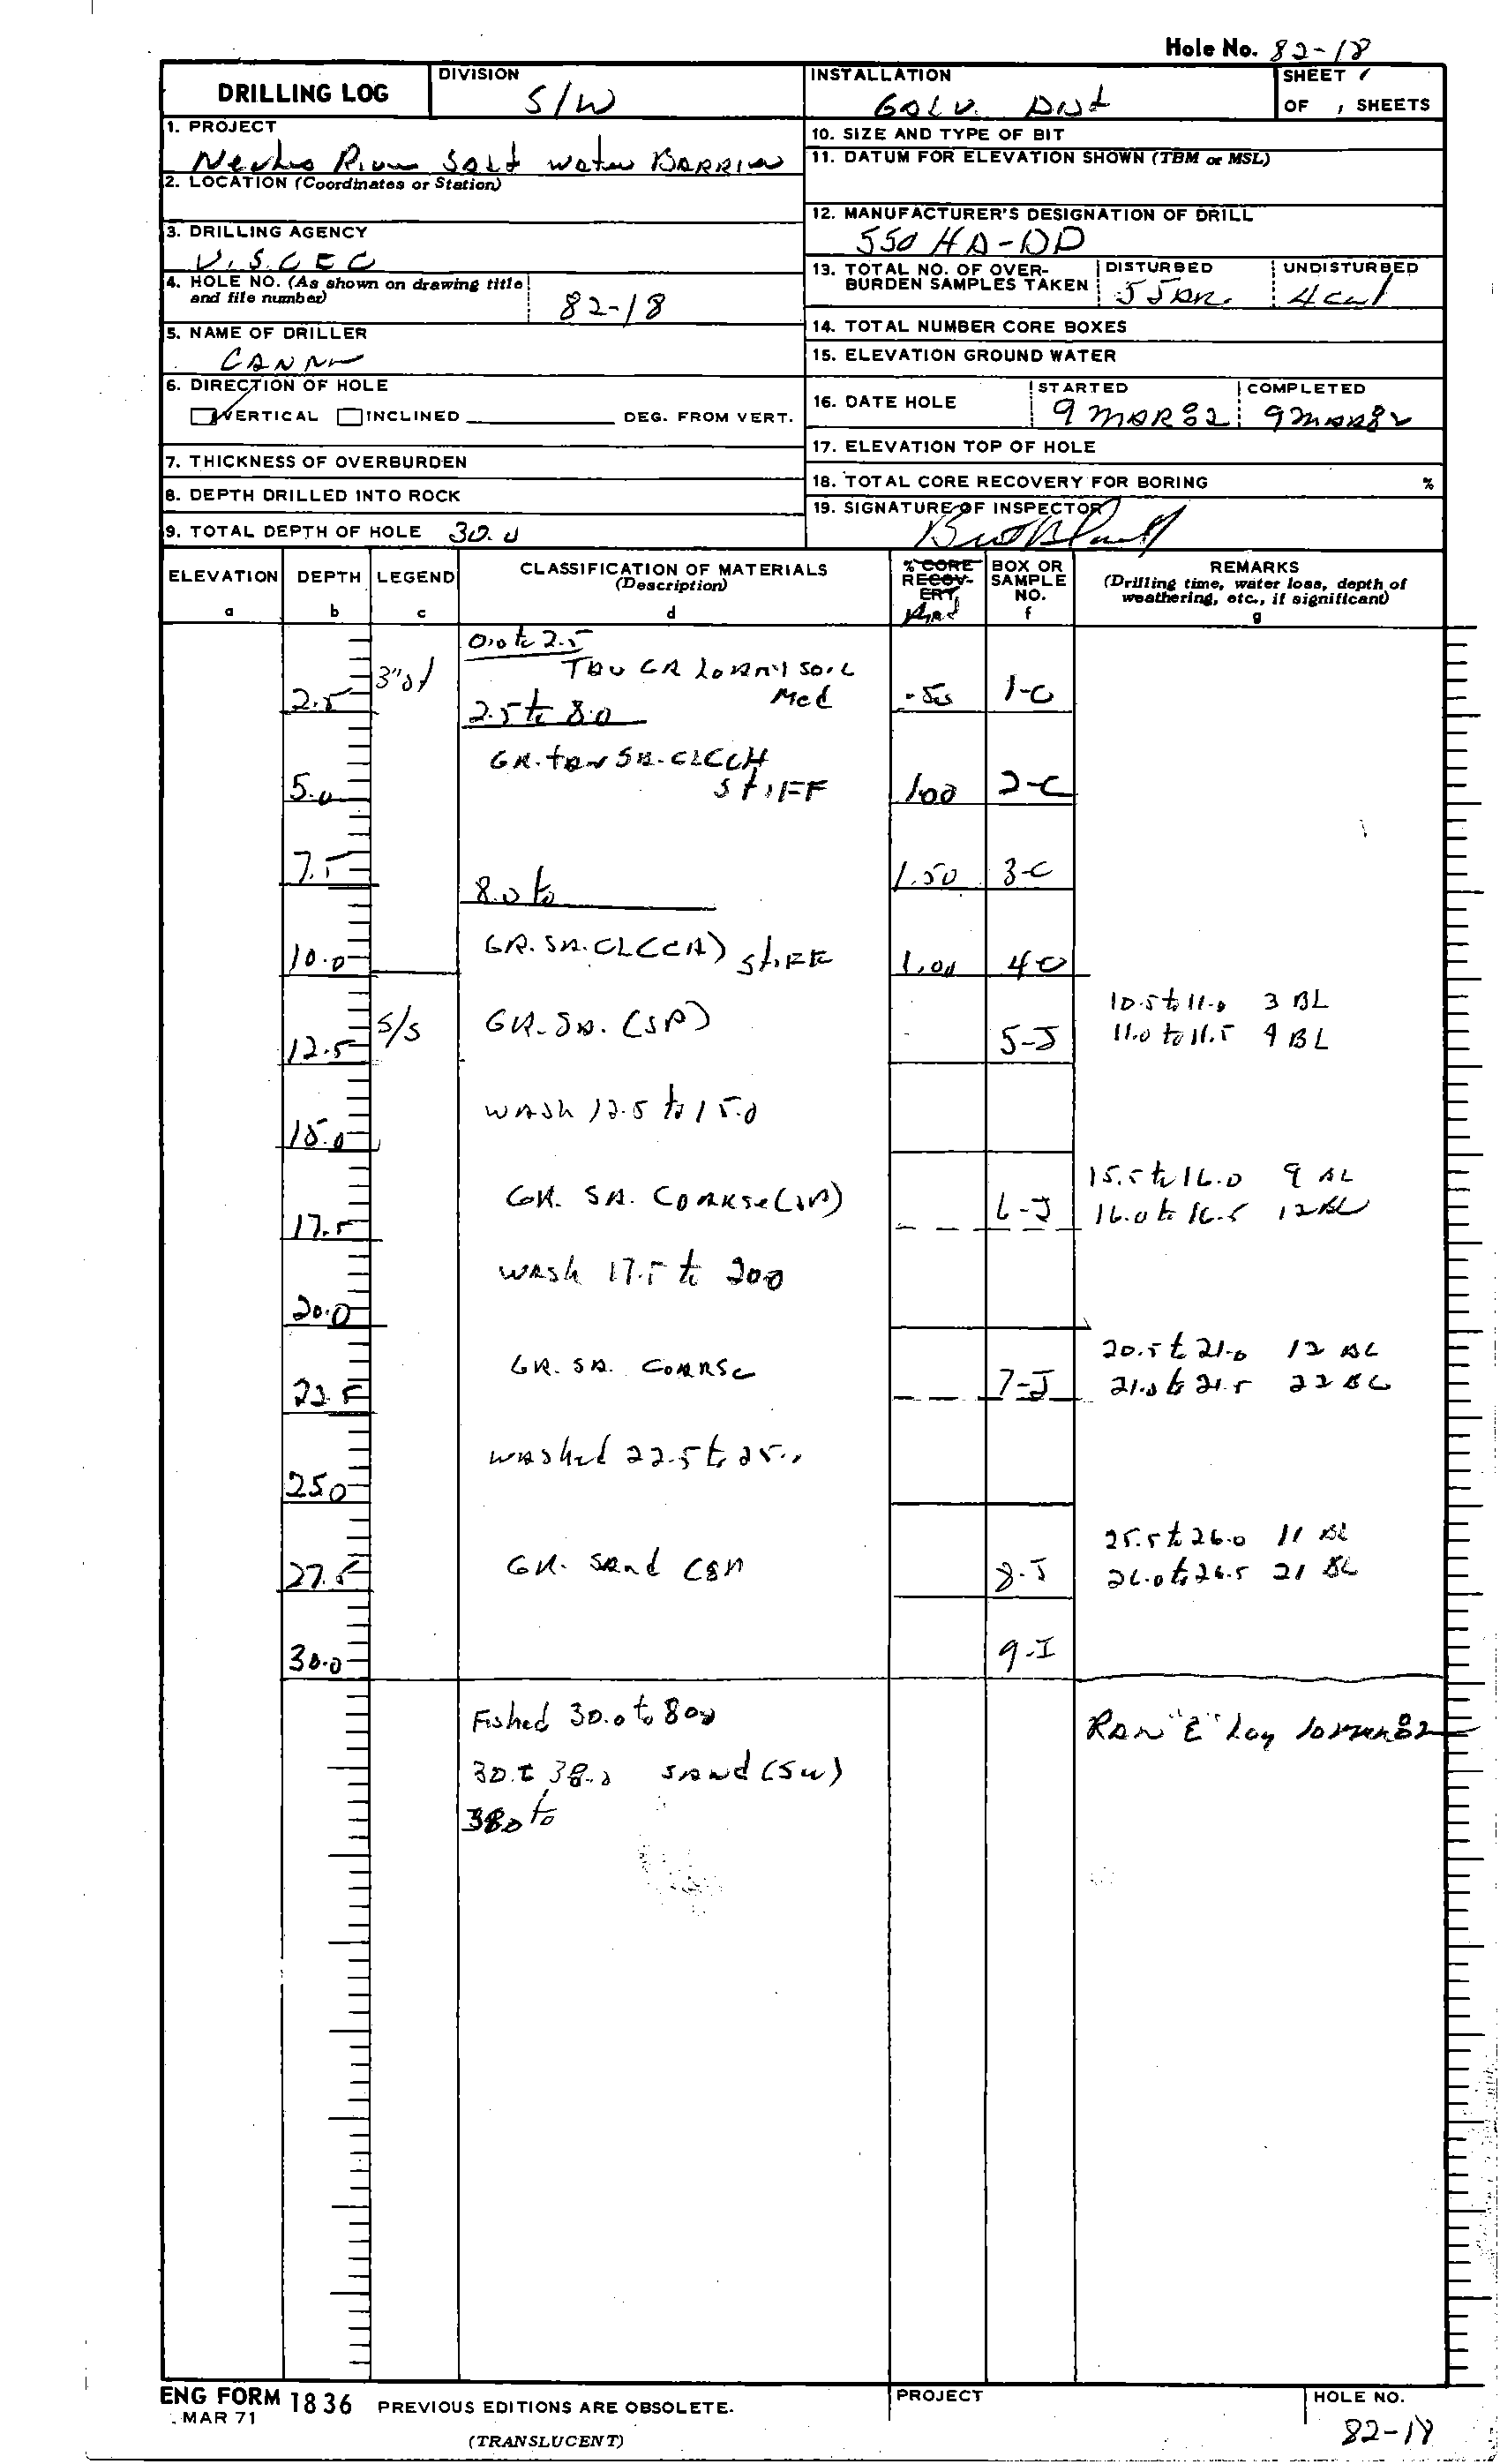 Hole No. 82-18
DRILLING LOG
DIVISION
S/W
INSTALLATION
GALV. Dist
SHEET 1
OF 1 SHEETS
1. PROJECT
Neches River Salt Water BARRIER
2. LOCATION (Coordinates or Station)
3. DRILLING AGENCY
U.S.C.E.C
4. HOLE NO. (As shown on drawing title and file number)
82-18
5. NAME OF DRILLER
CANN
6. DIRECTION OF HOLE
VERTICAL INCLINED DEG. FROM VERT.
7. THICKNESS OF OVERBURDEN
8. DEPTH DRILLED INTO ROCK
9. TOTAL DEPTH OF HOLE 30.0
10. SIZE AND TYPE OF BIT
11. DATUM FOR ELEVATION SHOWN (TBM or MSL)
12. MANUFACTURER'S DESIGNATION OF DRILL
550 HD-DD
13. TOTAL NO. OF OVER-
BURDEN SAMPLES TAKEN
DISTURBED
5 JAR.
UNDISTURBED
4
14. TOTAL NUMBER CORE BOXES
15. ELEVATION GROUND WATER
16. DATE HOLE
STARTED
9 MAR 82
COMPLETED
9 MAR 82
17. ELEVATION TOP OF HOLE
18. TOTAL CORE RECOVERY FOR BORING %
19. SIGNATURE OF INSPECTOR
ELEVATION
a
DEPTH
b
LEGEND
c
CLASSIFICATION OF MATERIALS
(Description)
d
% CORE
RECOV-
ERY
BOX OR
SAMPLE
NO.
f
REMARKS
(Drilling time, water loss, depth of
weathering, etc., if significant)
g
0.0 to 2.5
TAN GR LOAMY SOIL
Med
2.5 3" 1-C
2.5 to 8.0
GR. TAN SA. CL(CH
STIFF
5.0 1.00 2-C
7.5 1.50 3-C
8.0 to
GR. SA. CL(CH) STIFF
10.0 1.00 4C
12.5 S/S GR. SA. (SP) 5-J
10.5 to 11.0 3 BL
11.0 to 11.5 9 BL
15.0 WASH 12.5 to 15.0
17.5 GR. SA. COARSE (SP) 6-J
15.5 to 16.0 9 BL
16.0 to 16.5 12 BL
WASH 17.5 to 200
20.0
22.5 GR. SA. COARSE 7-J
20.5 to 21.0 12 BL
21.0 to 21.5 22 BL
washed 22.5 to 25.0
250
27.5 GR. Sand (SP) 8-J
25.5 to 26.0 11 BL
26.0 to 26.5 21 BL
30.0 9-J
Fished 30.0 to 800
30. to 38.0 SAND (SW)
380 to
RAN "E" Log 10 MAR 82
ENG FORM 1836
MAR 71
PREVIOUS EDITIONS ARE OBSOLETE.
(TRANSLUCENT)
PROJECT
HOLE NO.
82-18